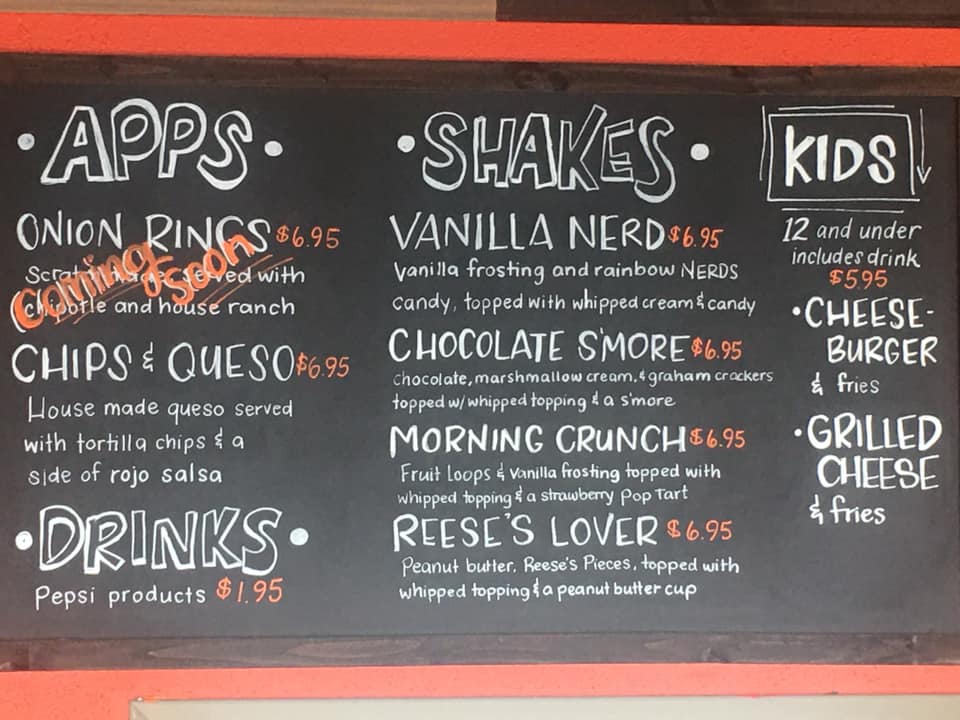 • APPS •
ONION RINGS $6.95
Scratch made, served with
chipotle and house ranch
Coming Soon
CHIPS & QUESO $6.95
House made queso served
with tortilla chips & a
side of rojo salsa
• DRINKS •
Pepsi products $1.95
• SHAKES •
VANILLA NERD $6.95
Vanilla frosting and rainbow NERDS
candy, topped with whipped cream & candy
CHOCOLATE S'MORE $6.95
Chocolate, marshmallow cream, & graham crackers
topped w/ whipped topping & a s'more
MORNING CRUNCH $6.95
Fruit Loops & Vanilla frosting topped with
whipped topping & a strawberry Pop Tart
REESE'S LOVER $6.95
Peanut butter, Reese's Pieces, topped with
whipped topping & a peanut butter cup
KIDS
12 and under
includes drink
$5.95
• CHEESE-
BURGER
& fries
• GRILLED
CHEESE
& fries